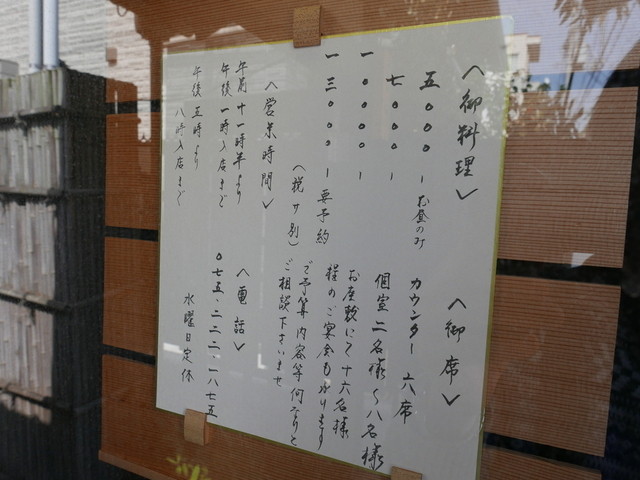 〈御料理〉
五〇〇〇ーお昼のみ
七〇〇〇ー
一〇〇〇〇ー
一三〇〇〇ー要予約
(税サ別)
〈御席〉
カウンター 六席
個室二名様〜八名様
お座敷にて十六名様
程のご宴会も承ります
ご予算内容等何なりと
ご相談下さいませ
〈営業時間〉
午前十一時半より
午後一時入店まで
午後五時より
八時入店まで
〈電話〉
〇七五・二二二・一八七五
水曜日定休